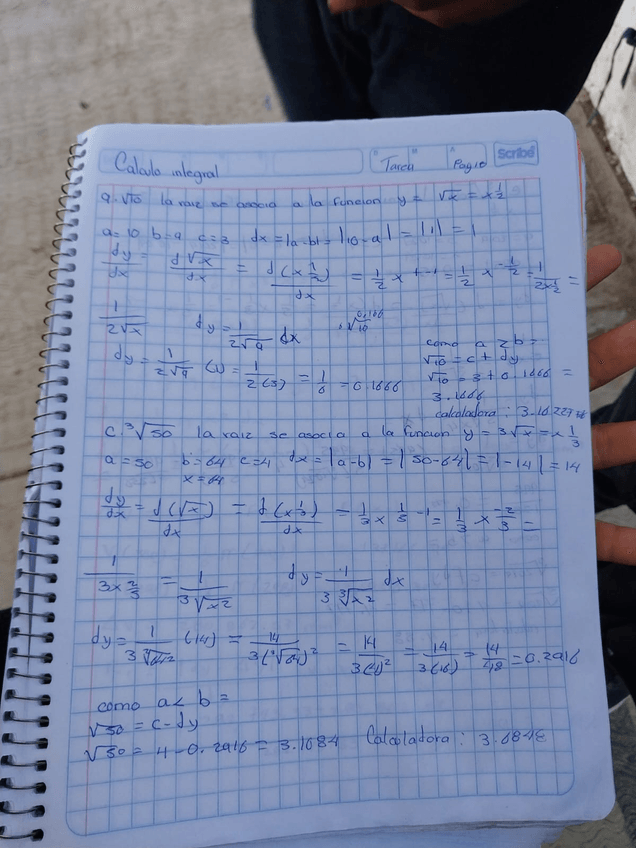 Calculo integral Tarea Pagie Scribe
a. √10 la raiz se asocia a la funcion y = √x = x 1/2
a= 10 b= 9 c= 3 dx = |a-b| = |10-9| = |1| = 1
dy/dx = d√x/dx = d(x 1/2)/dx = 1/2 x = 1/2 x -1/2 = 1/2x½ =
1/2√x dy = 1/2√9 dx
0.166
dy = 1/2√9 (1) = 1/2(3) = 1/6 = 0.1666
como a > b =
√10 = c + dy
√10 = 3 + 0.1666 =
3.1666
calculadora : 3.16227
c. ³√50 la raiz se asocia a la funcion y = 3√x = x 1/3
a = 50 b = 64 c=4 dx = |a-b| = |50-64| = |-14| = 14
x = 64
dy/dx = d(√x)/dx = d(x 1/3)/dx = 1/3 x 1/3 -1 = 1/3 x -2/3 =
1/3x 2/3 = 1/3√x2 dy = 1/3 ³√x2 dx
dy = 1/3 ³√64 2 (14) = 14/3(³√64)² = 14/3(4)² = 14/3(16) = 14/48 = 0.2916
como a < b =
√50 = c - dy
√50 = 4 - 0.2916 = 3.1684 Calculadora : 3.6848